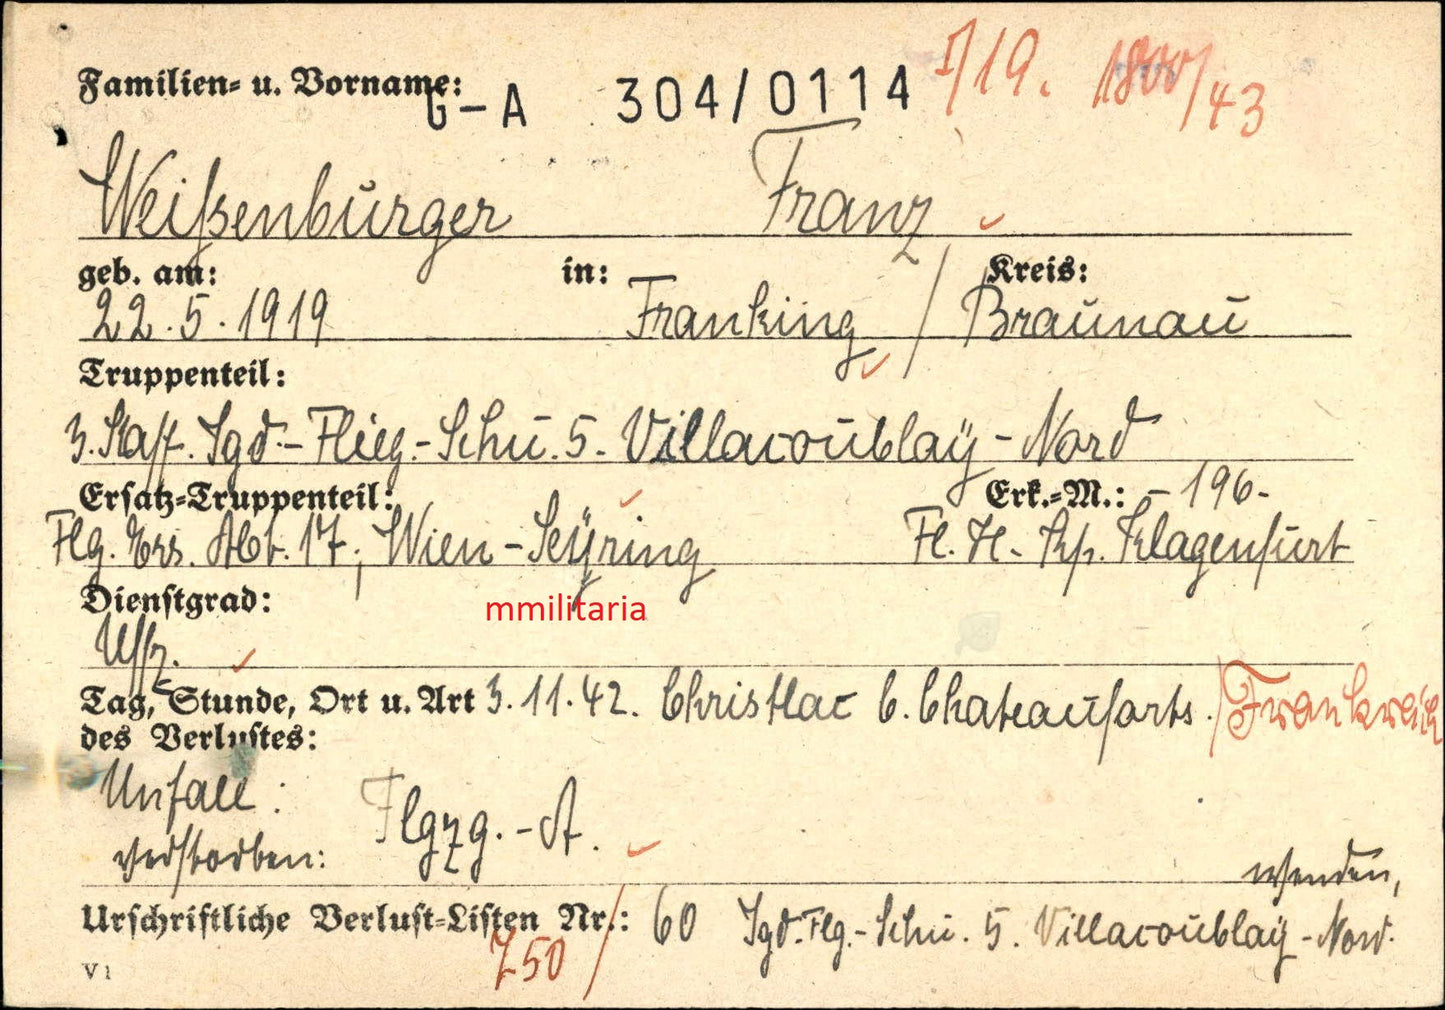 Familien- u. Vorname: G-A 304/0114 I/19. 1800/43
Weißenburger Franz
geb. am: in: Kreis:
22.5.1919 Franking / Braunau
Truppenteil:
3. Staff. Jgd.-Flieg.-Schu. 5. Villacoublay-Nord
Ersatz-Truppenteil: Erk.-M.: -196-
Flg. Ers. Abt. 17, Wien-Seyring Fl. H. Kp. Klagenfurt
Dienstgrad:
Uffz.
mmilitaria
Tag, Stunde, Ort u. Art 3.11.42. Christlac b. Chateauforts. / Frankreich
des Verlustes:
Unfall: Flgzg.-A.
verstorben:
wenden,
Urschriftliche Verlust-Listen Nr.: 60 Jgd.Flg.-Schu. 5. Villacoublay-Nord.
750 /
V 1